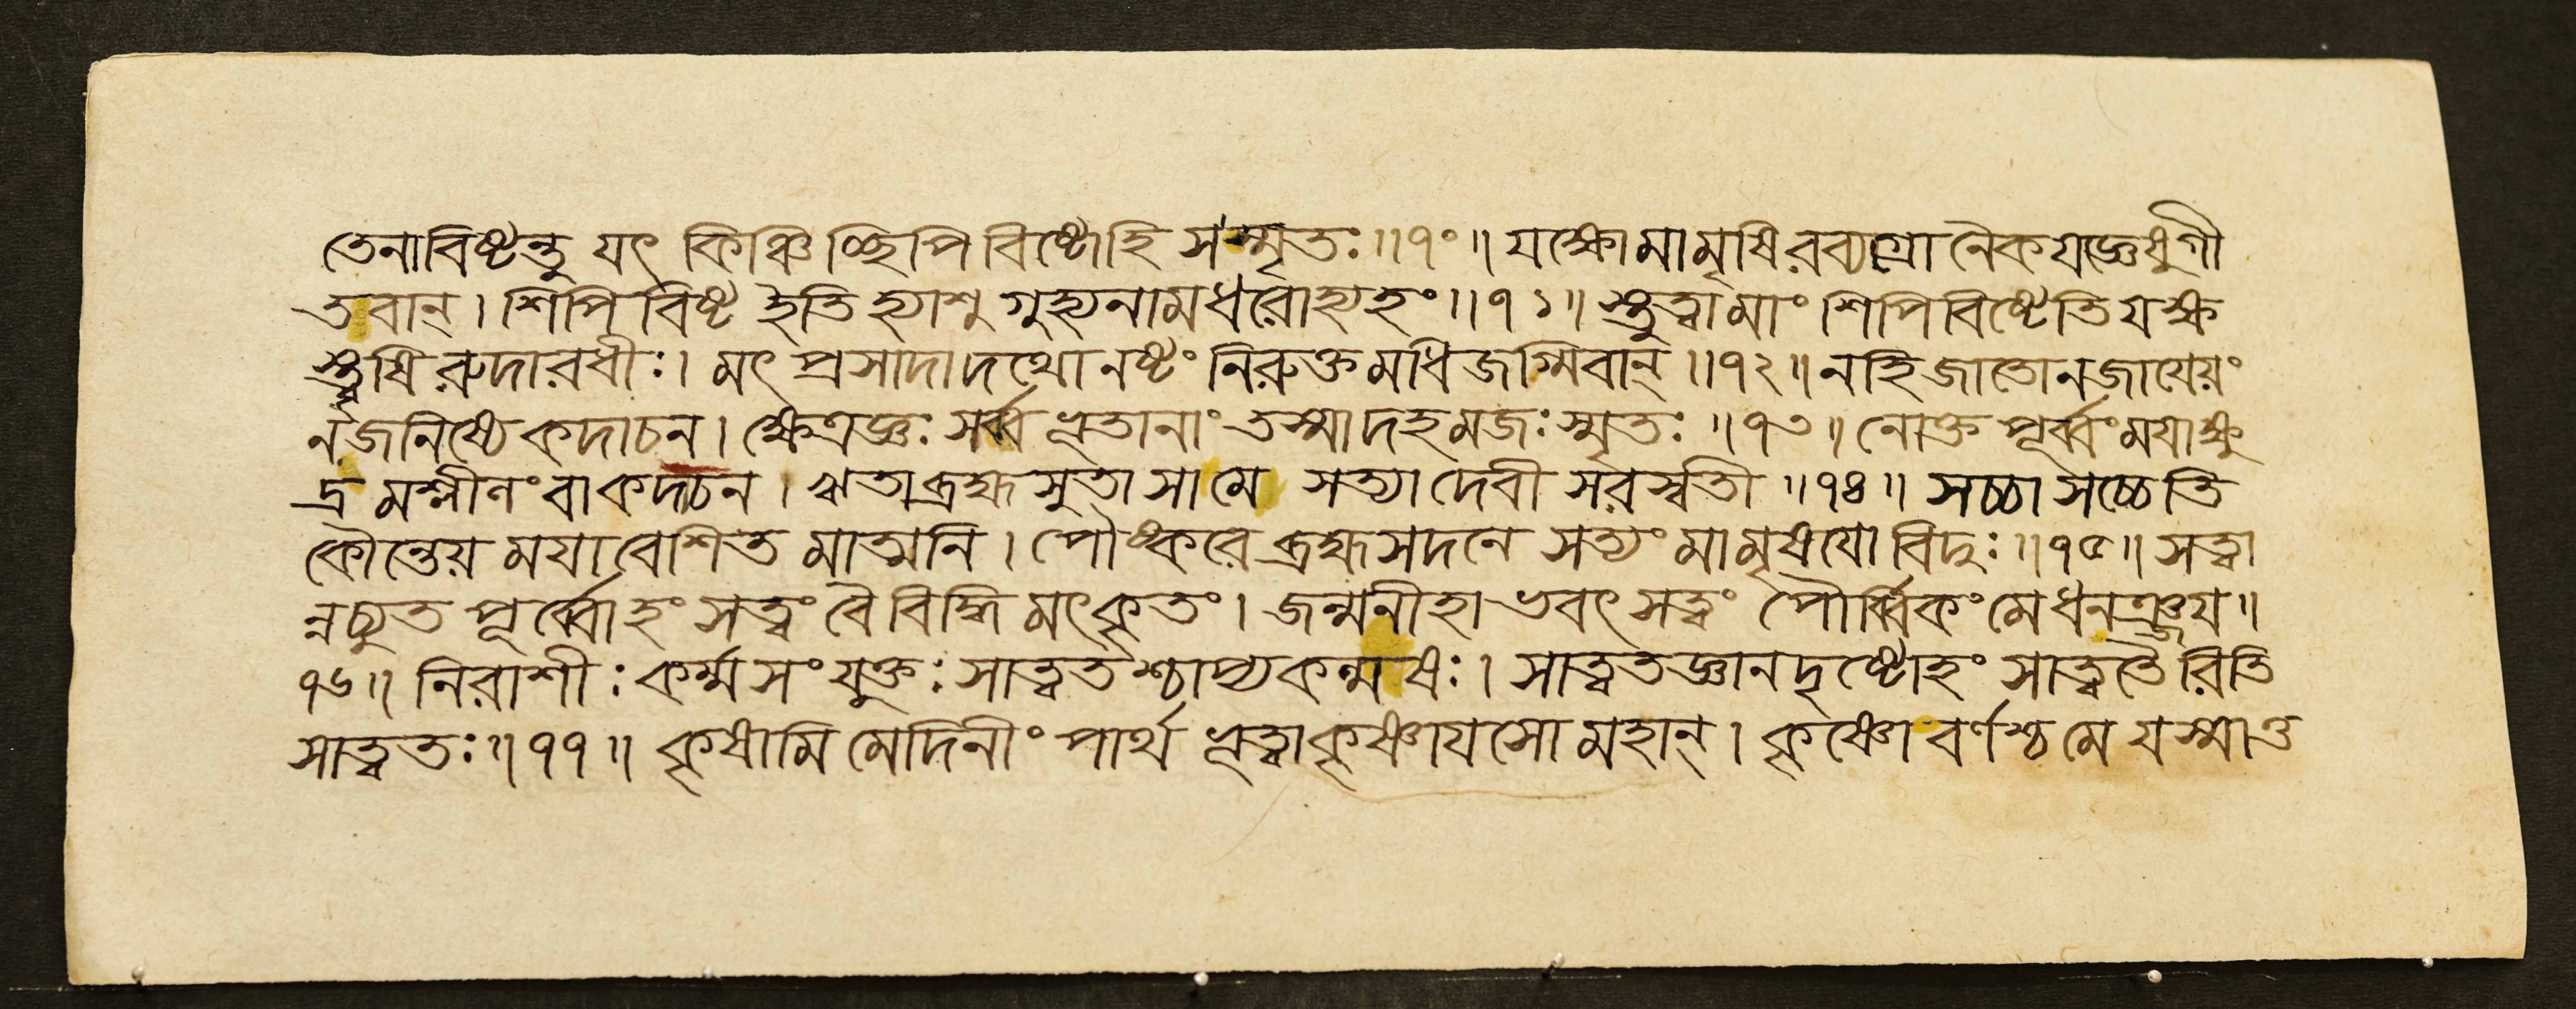 তেনাবিষ্টন্তু যৎ কিঞ্চিচ্ছিপিবিষ্টোহি সংস্মৃতঃ ॥৭০॥ যাস্কোমামৃষিরব্যগ্রোনৈকযজ্ঞেষুগী
তবান্। শিপিবিষ্ট ইতি হ্যাশু গুহ্যনামধরোহ্যহং ॥৭১॥ স্তুত্বামাং শিপিবিষ্টেতি যাস্ক
ঋষিরুদারধীঃ। মৎ প্রসাদাদথোনষ্টং নিরুক্তমধিজগ্মিবান্ ॥৭২॥ নহিজাতোনজায়েয়ং
নজনিষ্যেকদাচন। ক্ষেত্রজ্ঞঃ সর্ব্বভূতানাং তস্মাদহমজঃস্মৃতঃ ॥৭৩॥ নোক্তপূর্ব্বংময়াক্ষু
দ্রমশ্লীলংবাকদাচন। ঋতাব্রহ্মসুতাসামে সত্যাদেবীসরস্বতী ॥৭৪॥ সচ্চাসচ্চেতি
কৌন্তেয়ময়াবেশিতমাত্মনি। পৌষ্করেব্রহ্মসদনে সত্যংমামৃষয়োবিদুঃ ॥৭৫॥ সত্ত্বা
ন্নচ্যুতপূর্ব্বোহং সত্ত্বংবৈবিদ্ধিমৎকৃতং। জন্মনীহাভবৎসত্ত্বং পৌর্ব্বিকংমেধনঞ্জয়॥
৭৬॥ নিরাশীঃকর্ম্মসংযুক্তঃসাত্ত্বতশ্চাপ্যকল্মষঃ। সাত্ত্বতজ্ঞানদৃষ্টোহং সাত্ত্বতৈরিতি
সাত্ত্বতঃ॥৭৭॥ কৃষামিমেদিনীং পার্থ ভূত্বাকৃষ্ণায়সোমহান্। কৃষ্ণোবর্ণশ্চমে যস্মাত্ত